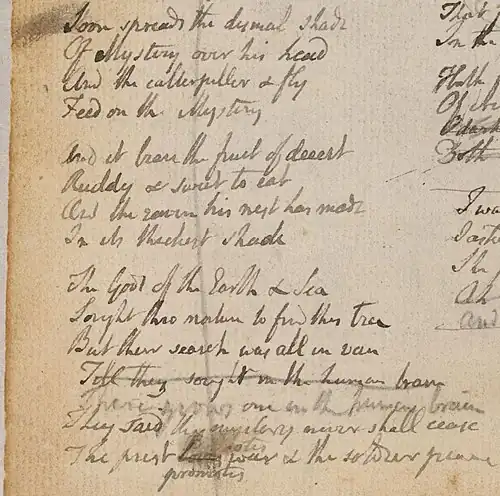 Soon spreads the dismal shade
Of Mystery over his head
And the catterpiller & fly
Feed on the Mystery
And it bears the fruit of deceit
Ruddy & sweet to eat
And the raven his nest has made
In its thickest shade
The Gods of the Earth & Sea
Sought thro nature to find this tree
But their search was all in vain
Till they sought in the human brain
There grows one in the human brain
They said this mystery never shall cease
The priest loves war & the soldier peace
promotes
That
In the
Both
I was
The
Ah
and